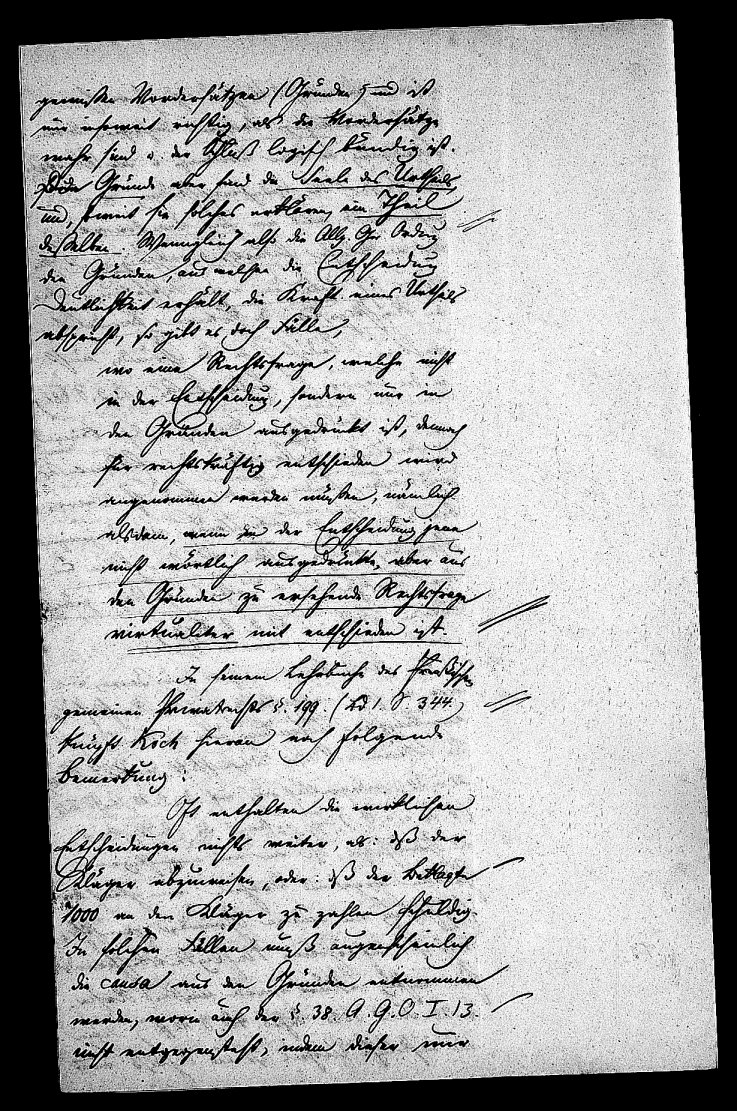 gewissen Vordersätzen (Gründen) und ist
nur insoweit richtig, als die Vordersätze
wahr sind u. der Schluß logisch bündig ist.
Diese Gründe aber sind die Seele des Urtheils
und, soweit sie solches erklären, ein Theil
desselben. Wenngleich also die Allg. Ger. Ordng
den Gründen, aus welchen die Entscheidung
Deutlichkeit erhält, die Kraft eines Urtheils
abspricht, so gibt es doch Fälle,
wo eine Rechtsfrage, welche nicht
in der Entscheidung, sondern nur in
den Gründen ausgedrückt ist, dennoch
für rechtskräftig entschieden wird
angenommen werden müssen, nämlich
alsdann, wenn in der Entscheidung jene
nicht wörtlich ausgedrückte, aber aus
den Gründen zu ersehende Rechtsfrage
virtualiter mit entschieden ist.
In seinem Lehrbuche des Preußischen
gemeinen Privatrechts §. 199. (Bd 1. S. 344.)
knüpft Koch hieran noch folgende
Bemerkung:
Oft enthalten die wirklichen
Entscheidungen nichts weiter, als: dß der
Kläger abzuweisen, oder: dß der Beklagte
1000 an den Kläger zu zahlen schuldig.
In solchen Fällen muß augenscheinlich
die causa aus den Gründen entnommen
werden, worin auch der §. 38. A.G.O. I. 13.
nicht entgegensteht, indem dieser nur